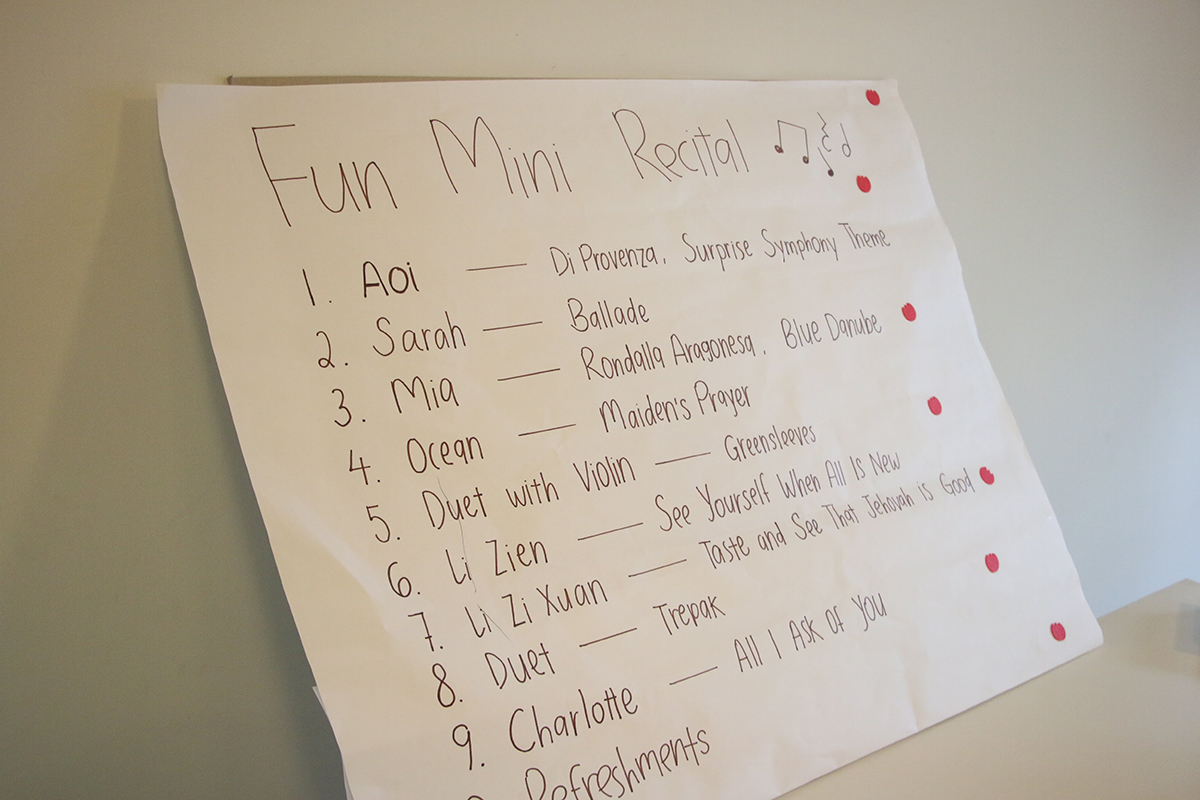 Fun Mini Recital
1. Aoi — Di Provenza, Surprise Symphony Theme
2. Sarah — Ballade
3. Mia — Rondalla Aragonesa, Blue Danube
4. Ocean — Maiden's Prayer
5. Duet with Violin — Greensleeves
6. Li Zien — See Yourself When All Is New
7. Li Zi Xuan — Taste and See That Jehovah is Good
8. Duet — Trepak
9. Charlotte — All I Ask of You
Refreshments